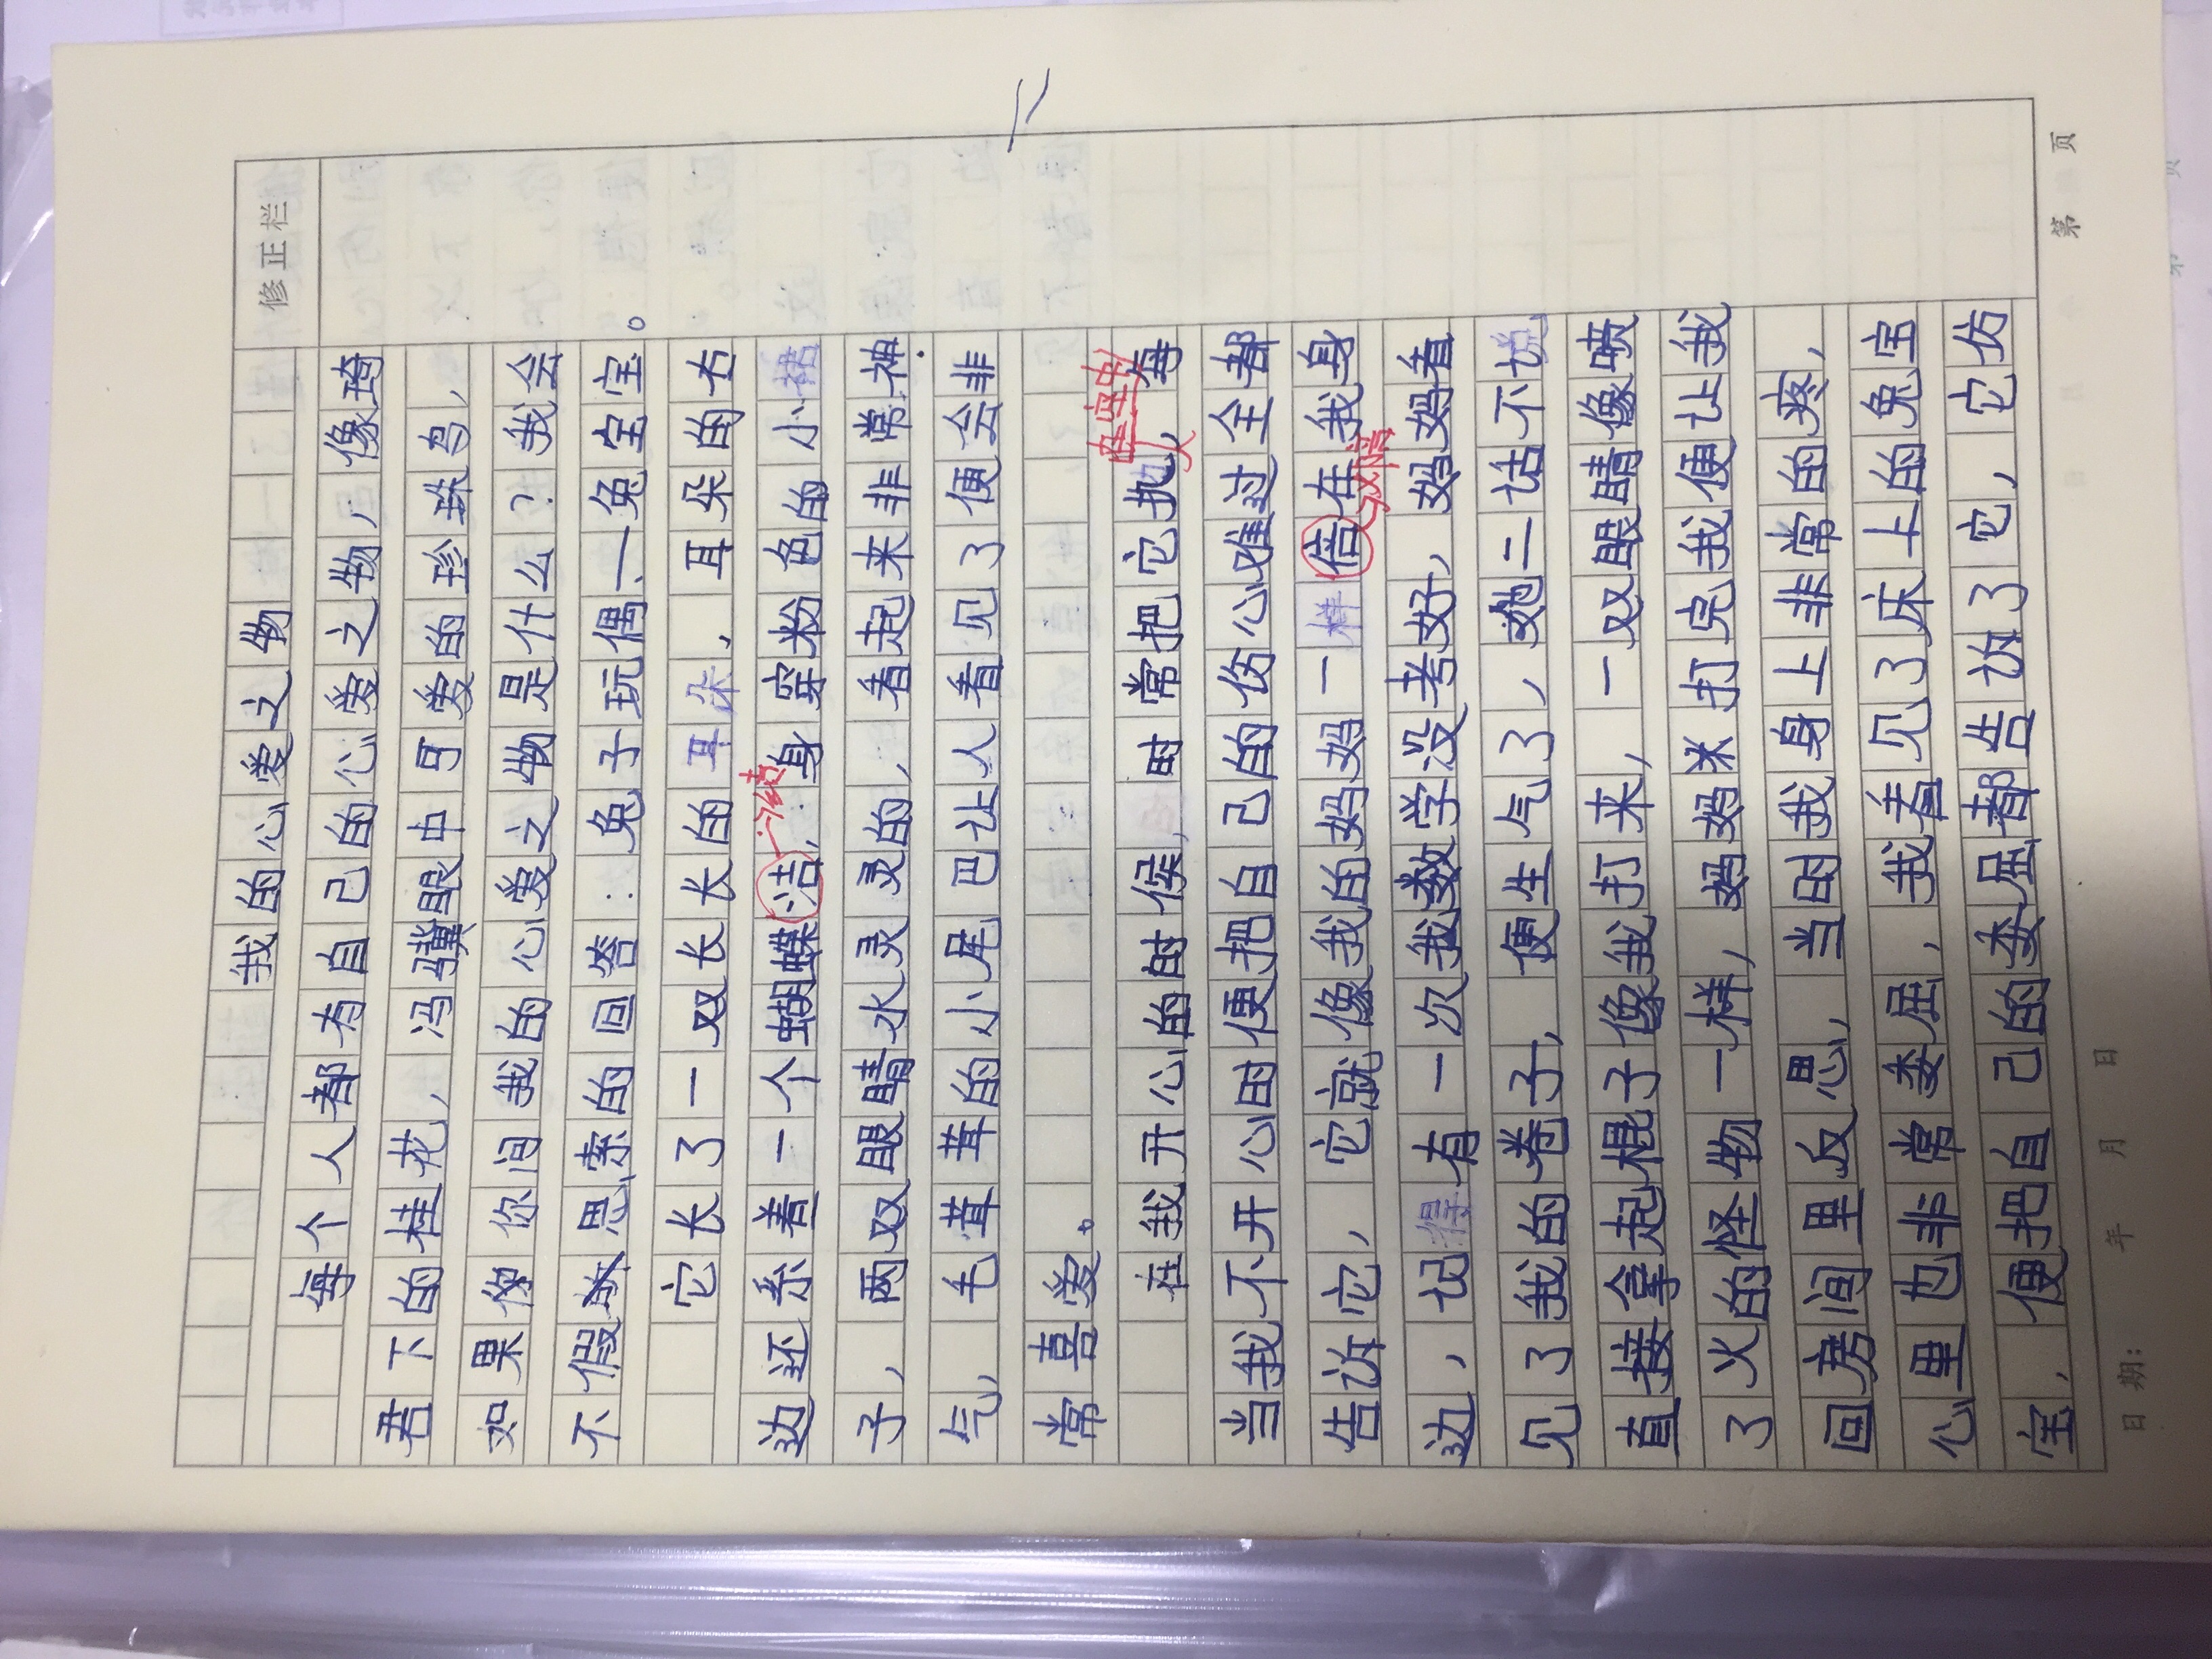 修正栏
我的心爱之物
每个人都有自己的心爱之物，像琦
君下的桂花，冯骥眼中可爱的珍珠鸟，
如果你问我的心爱之物是什么？我会
不假思索的回答：兔子玩偶—兔宝宝。
它长了一双长长的耳朵，耳朵的右
边还系着一个蝴蝶洁，身穿粉色的小裙
结
子，两双眼睛水灵灵的，看起来非常神
气，毛茸茸的小尾巴让人看见了便会非
常喜爱。
在我开心的时候，时常把它抱 每
当我不开心时便把自己的伤心难过全都
告诉它，它就像我的妈妈一样倍在我身
陪
边，记得有一次我数学没考好，妈妈看
见了我的卷子，便生气了，她二话不说，
直接拿起棍子像我打来，一双眼睛像喷
了火的怪物一样，妈妈打完我便让我
回房间里反思，当时我身上非常的疼，
心里也非常委屈，我看见了床上的兔宝
宝，便把自己的委屈都告诉了它，它仿
日期： 年 月 日 第 页